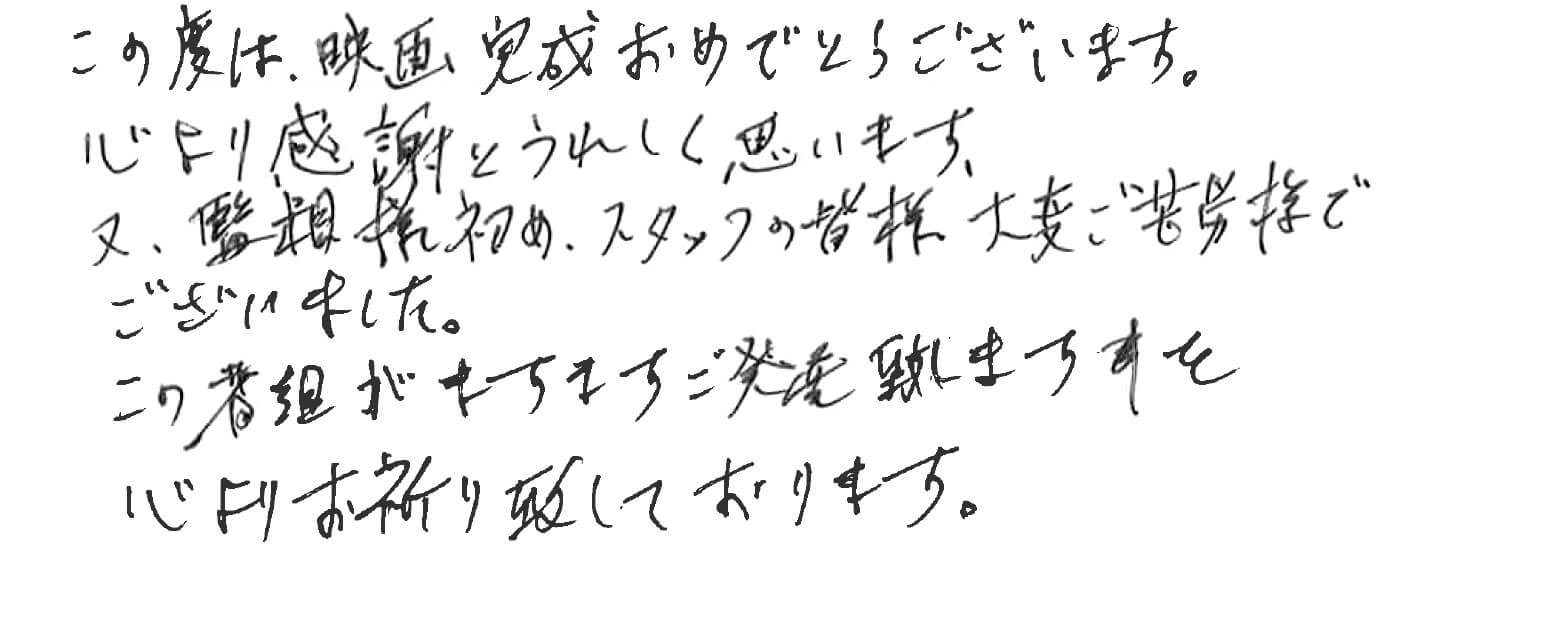 この度は、映画完成おめでとうございます。
心より感謝とうれしく思います、
又、監督様初め、スタッフの皆様大変ご苦労様で
ございました。
この番組がますますご発展致しますすを
心よりお祈り致しております。